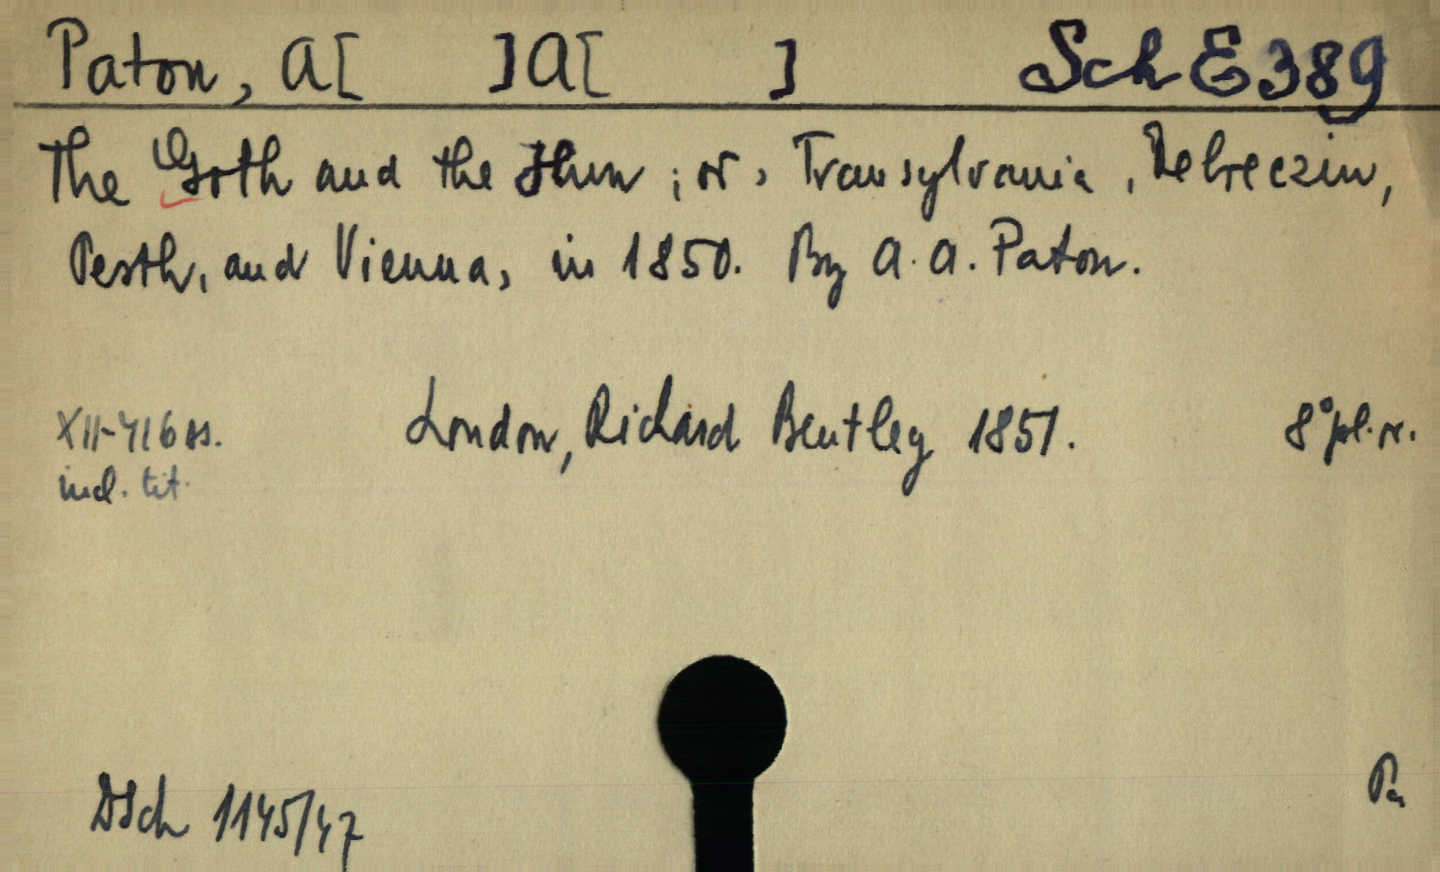 Paton, A[ ]A[ ] Sch E 389
The Goth and the Hun ; or, Transylvania, Debreczin,
Pesth, and Vienna, in 1850. By A. A. Paton.
XII-416 ss. London, Richard Bentley 1851. 8° pl. n.
incl. tit.
DSch 1145/47